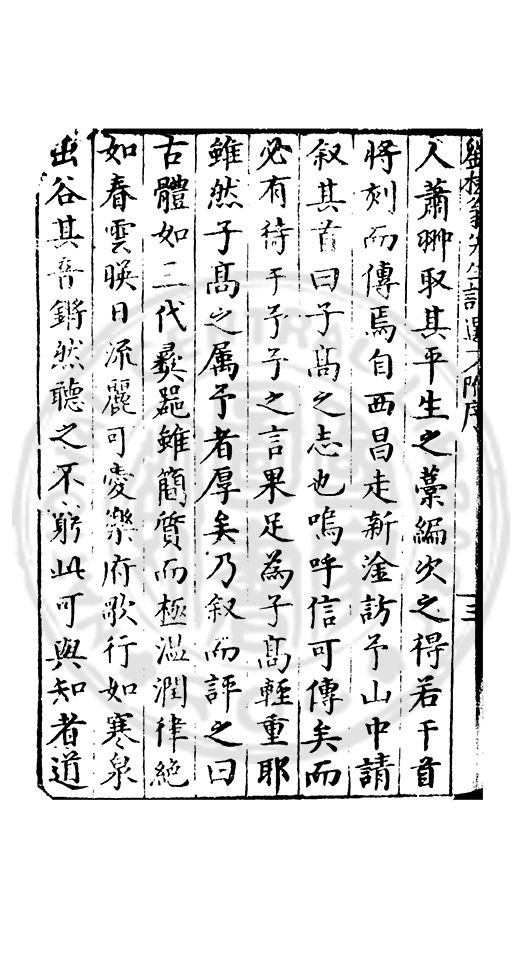 劉槎翁先生詩選 附序 三
人蕭翀取其平生之藁編次之得若干首
將刻而傳焉自西昌走新淦訪予山中請
叙其首曰子髙之志也嗚呼信可傳矣而
必有待于予予之言果足為子髙輕重耶
雖然子髙之属予者厚矣乃叙而評之曰
古體如三代彛噐雖簡質而極温潤律絶
如春雲暎日流麗可愛樂府歌行如寒泉
出谷其音鏘然聽之不窮此可與知者道